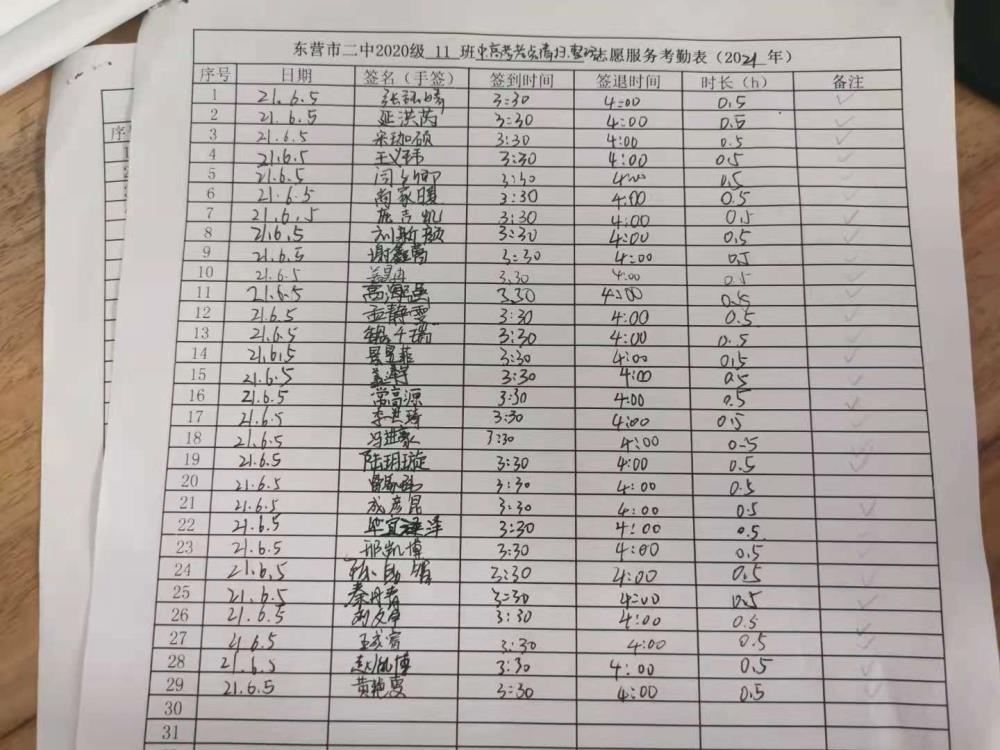 东营市二中2020级 11 班中高考考点清扫、整理志愿服务考勤表（2021年）
序号 日期 签名（手签） 签到时间 签退时间 时长（h） 备注
1 21.6.5 3:30 4:00 0.5 ✓
2 21.6.5 延洪芮 3:30 4:00 0.5 ✓
3 21.6.5 宋珈硕 3:30 4:00 0.5 ✓
4 21.6.5 王义玮 3:30 4:00 0.5 ✓
5 21.6.5 3:30 4:00 0.5 ✓
6 21.6.5 尚家暄 3:30 4:00 0.5 ✓
7 21.6.5 3:30 4:00 0.5 ✓
8 21.6.5 刘新颜 3:30 4:00 0.5 ✓
9 21.6.5 谢鑫萬 3:30 4:00 0.5 ✓
10 21.6.5 3.30 4:00 0.5 ✓
11 21.6.5 3.30 4:00 0.5 ✓
12 21.6.5 孟静雯 3:30 4:00 0.5 ✓
13 21.6.5 3:30 4:00 0.5 ✓
14 21.6.5 3:30 4:00 0.5 ✓
15 21.6.5 3:30 4:00 0.5 ✓
16 21.6.5 常高源 3:30 4:00 0.5 ✓
17 21.6.5 李洪琦 3:30 4:00 0.5 ✓
18 21.6.5 冯进豪 3:30 4:00 0.5 ✓
19 21.6.5 陆玥璇 3:30 4:00 0.5 ✓
20 21.6.5 3:30 4:00 0.5
21 21.6.5 成彦昆 3:30 4:00 0.5 ✓
22 21.6.5 3:30 4:00 0.5 ✓
23 21.6.5 邢凯博 3:30 4:00 0.5 ✓
24 21.6.5 3:30 4:00 0.5 ✓
25 21.6.5 秦丹青 3:30 4:00 0.5 ✓
26 21.6.5 3:30 4:00 0.5 ✓
27 21.6.5 3:30 4:00 0.5 ✓
28 21.6.5 3:30 4:00 0.5 ✓
29 21.6.5 黄艳雯 3:30 4:00 0.5 ✓
30
31